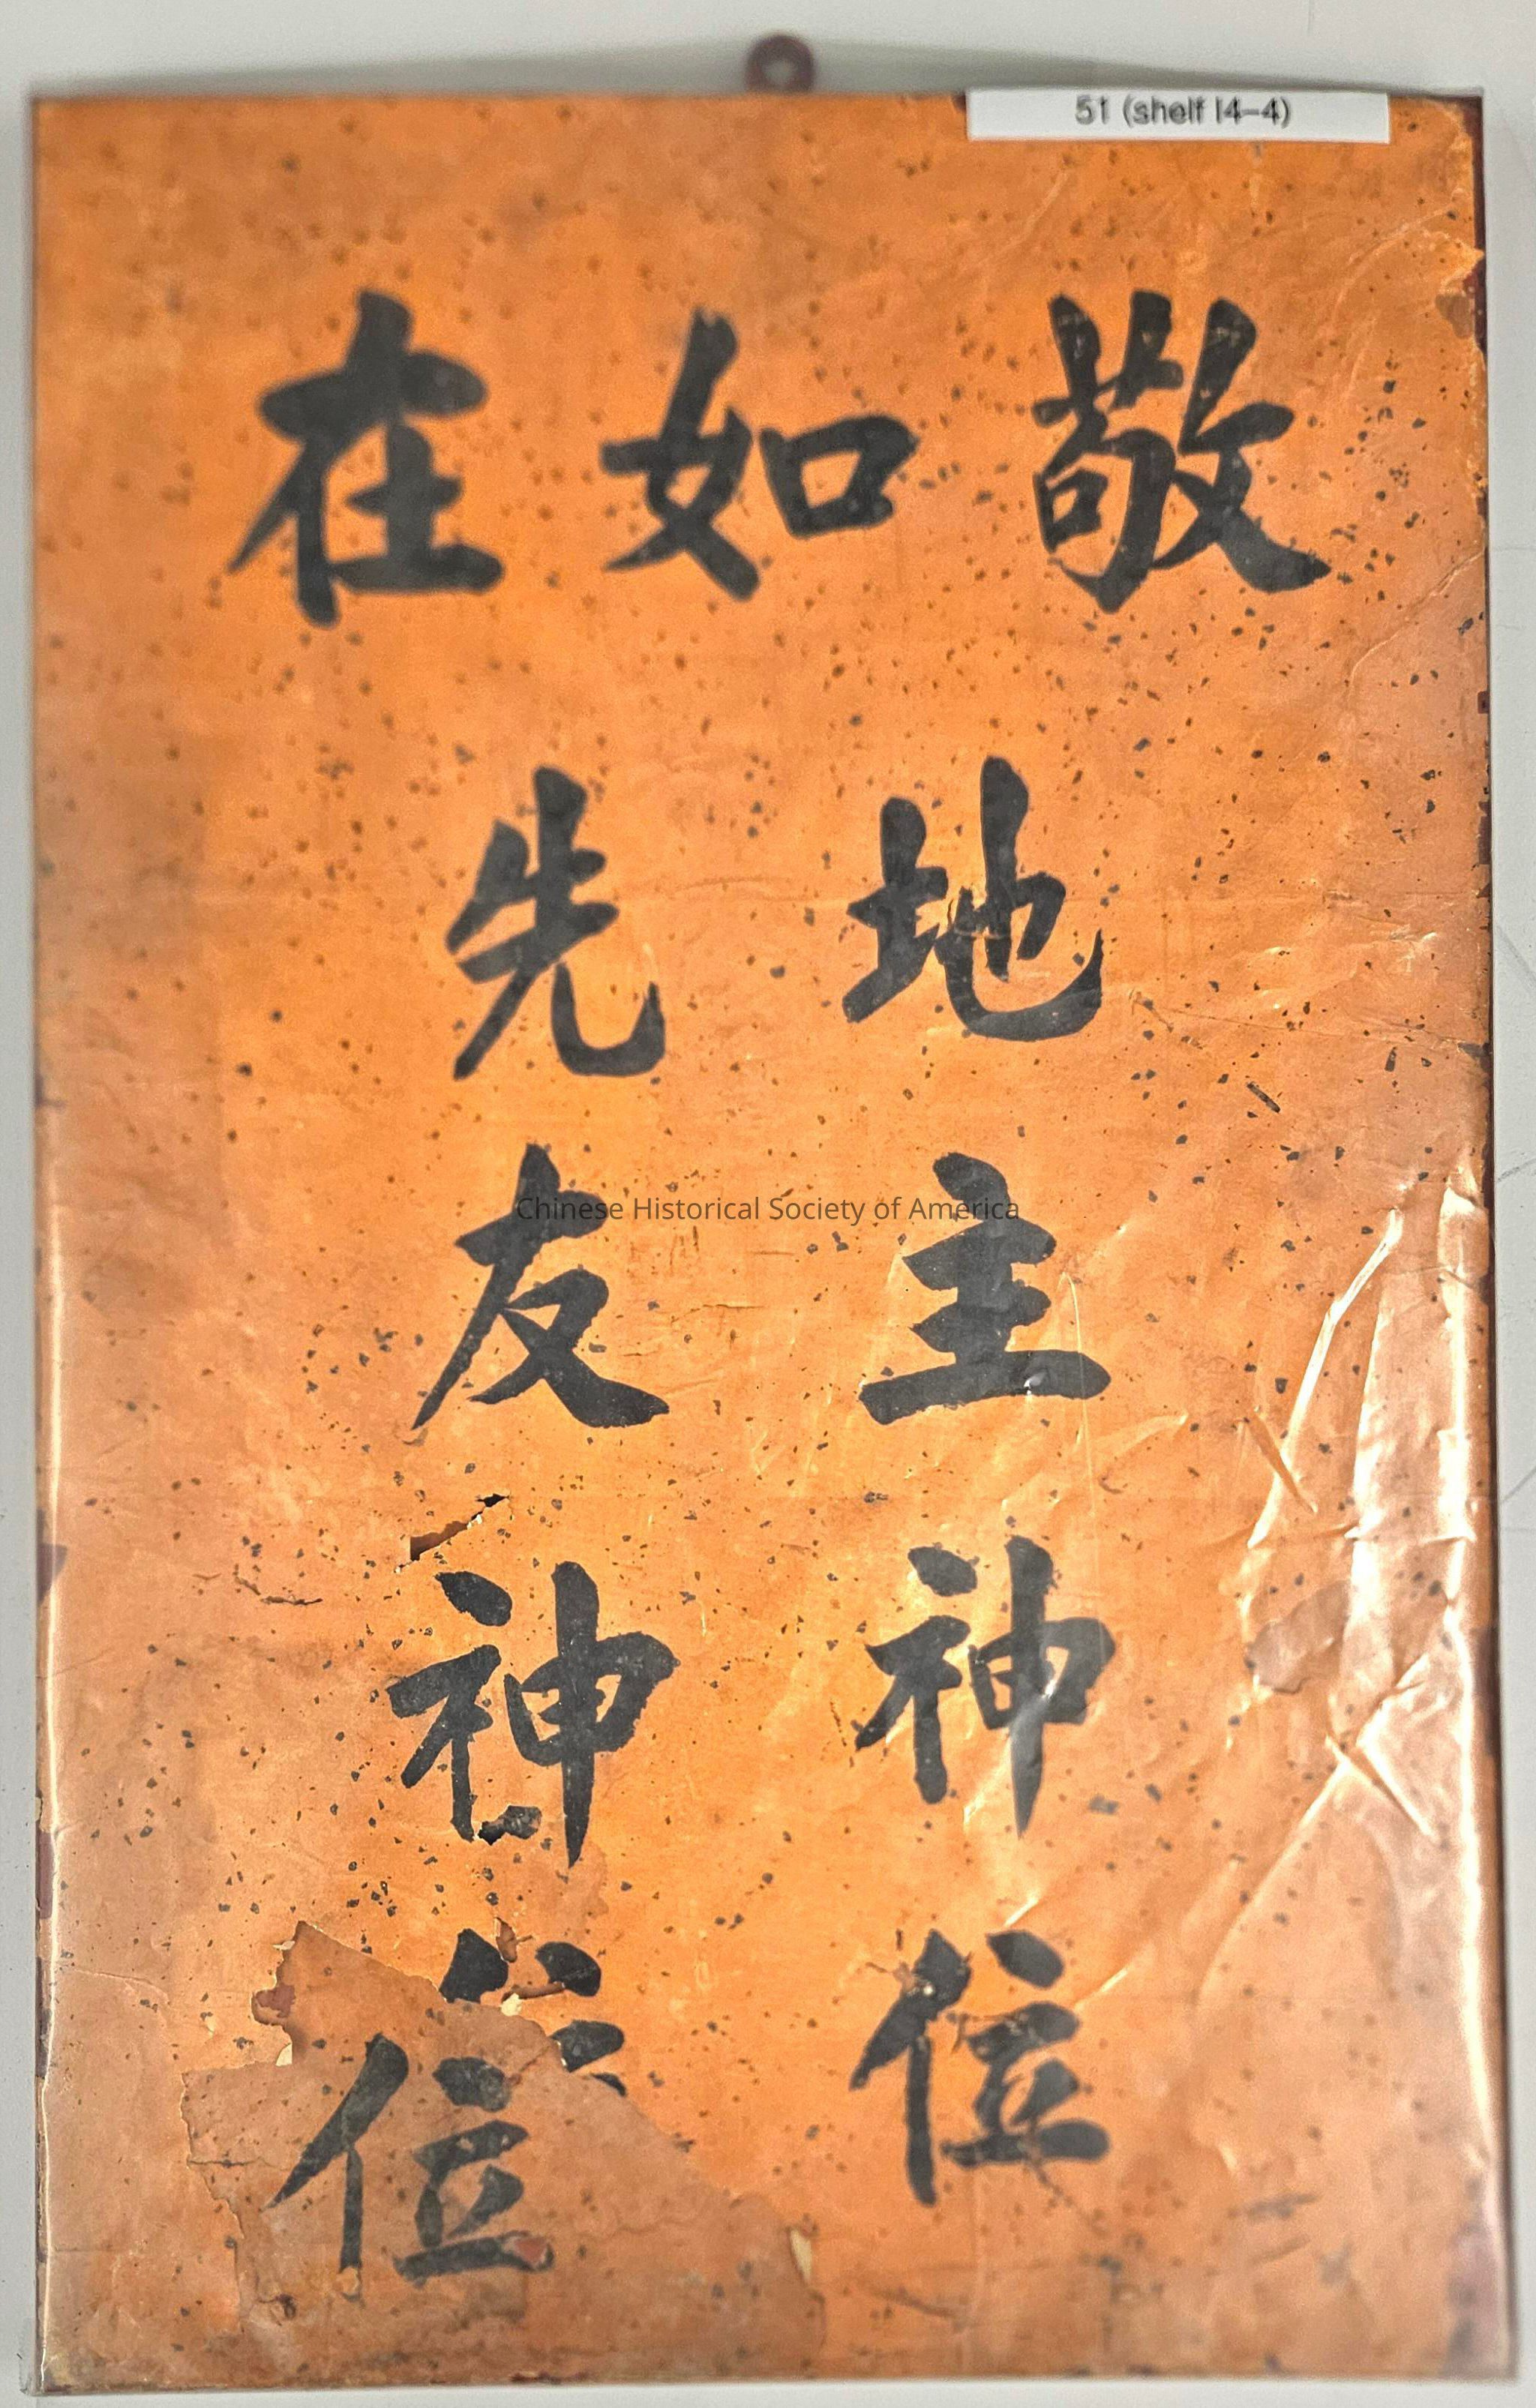 51 (shelf I4-4)
敬如在
地主神位
先友神位
Chinese Historical Society of America